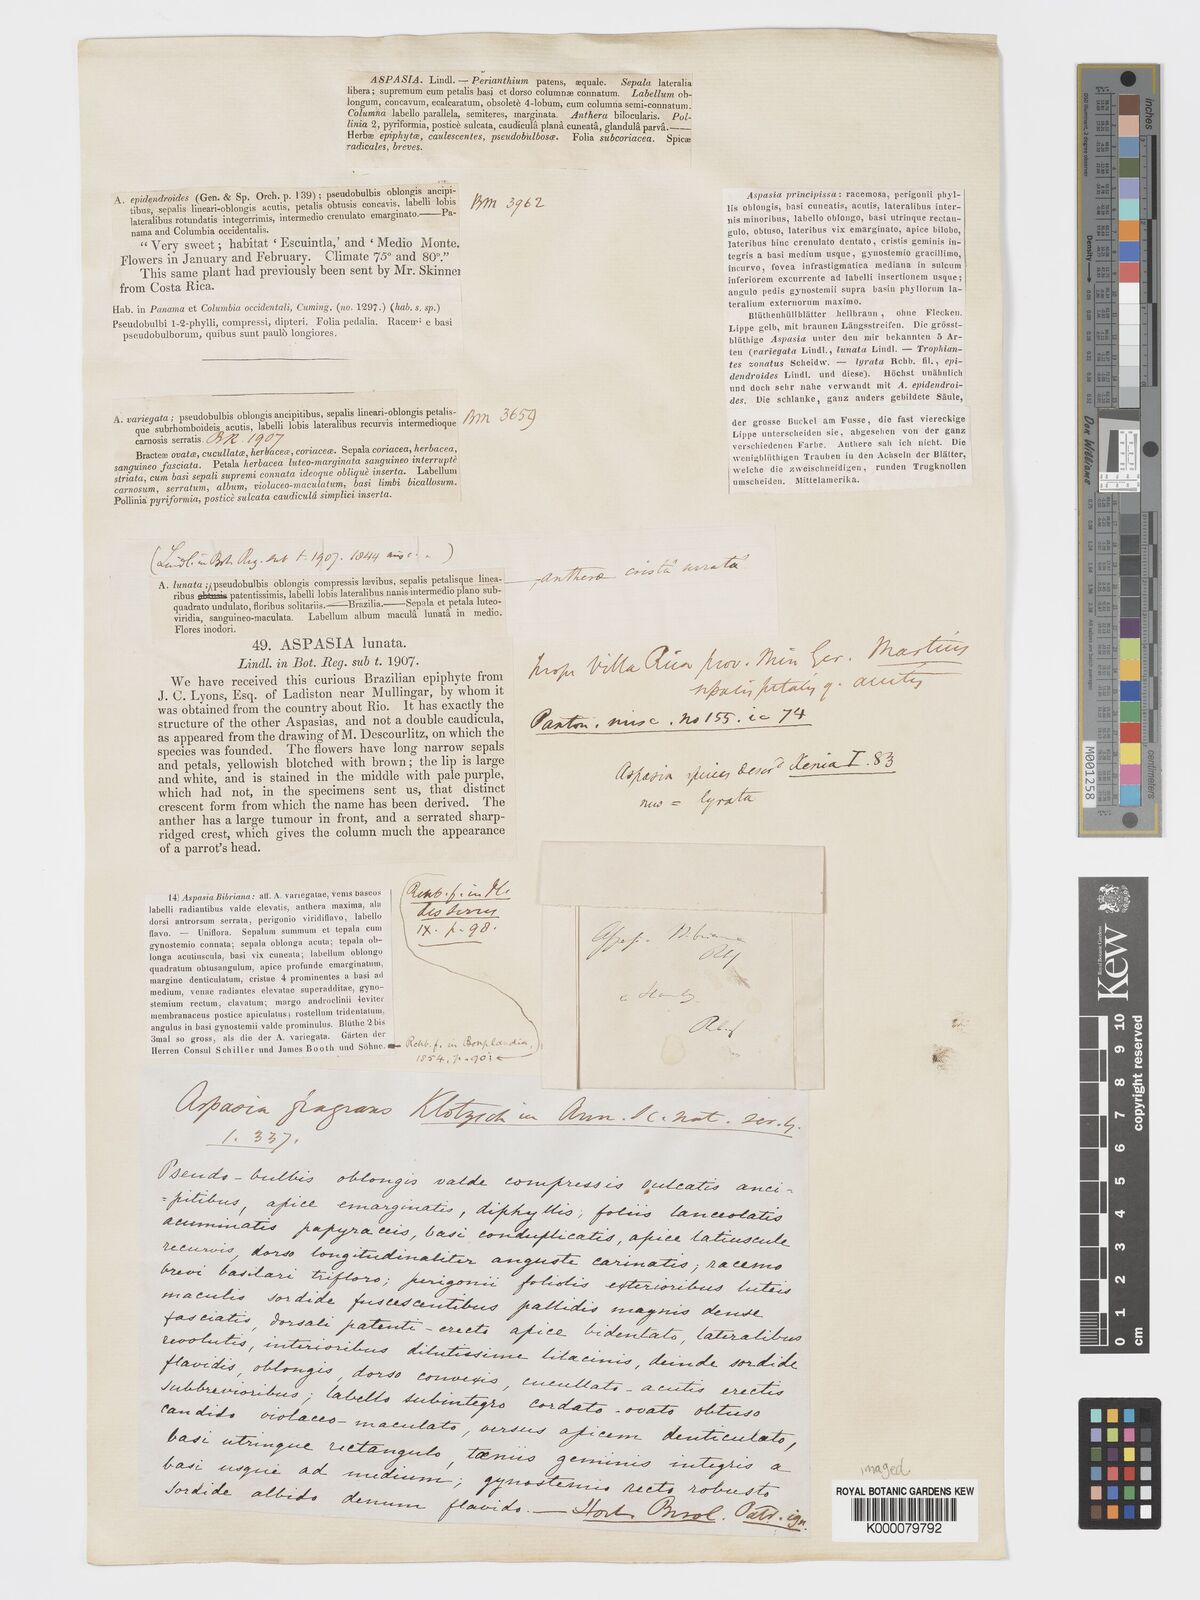 ASPASIA. Lindl. — Perianthium patens, æquale. Sepala lateralia
libera; supremum cum petalis basi et dorso columnæ connatum. Labellum ob-
longum, concavum, ecalcaratum, obsoletè 4-lobum, cum columna semi-connatum.
Columna labello parallela, semiteres, marginata. Anthera bilocularis. Pol-
linia 2, pyriformia, posticè sulcata, caudiculâ planâ cuneatâ, glandulâ parvâ.——
Herbæ epiphytæ, caulescentes, pseudobulbosæ. Folia subcoriacea. Spicæ
radicales, breves.
A. epidendroides (Gen. & Sp. Orch. p. 139); pseudobulbis oblongis ancipi-
tibus, sepalis lineari-oblongis acutis, petalis obtusis concavis, labelli lobis
lateralibus rotundatis integerrimis, intermedio crenulato emarginato.——Pa-
nama and Columbia occidentalis.
BM 3962
“Very sweet; habitat ‘Escuintla,’ and ‘Medio Monte.
Flowers in January and February. Climate 75° and 80°.”
This same plant had previously been sent by Mr. Skinner
from Costa Rica.
Hab. in Panama et Columbia occidentali, Cuming. (no. 1297.) (hab. s. sp.)
Pseudobulbi 1-2-phylli, compressi, dipteri. Folia pedalia. Racemi e basi
pseudobulborum, quibus sunt paulò longiores.
Aspasia principissa: racemosa, perigonii phyl-
lis oblongis, basi cuneatis, acutis, lateralibus inter-
nis minoribus, labello oblongo, basi utrinque rectan-
gulo, obtuso, lateribus vix emarginato, apice bilobo,
lateribus hinc crenulato dentato, cristis geminis in-
tegris a basi medium usque, gynostemio gracillimo,
incurvo, fovea infrastigmatica mediana in sulcum
inferiorem excurrente ad labelli insertionem usque;
angulo pedis gynostemii supra basin phyllorum la-
teralium externorum maximo.
Blüthenhüllblätter hellbraun, ohne Flecken.
Lippe gelb, mit braunen Längsstreifen. Die grösst-
blüthige Aspasia unter den mir bekannten 5 Ar-
ten (variegata Lindl., lunata Lindl. — Trophian-
tes zonatus Scheidw. — lyrata Rchb. fil., epi-
dendroides Lindl. und diese). Höchst unähnlich
und doch sehr nahe verwandt mit A. epidendroi-
des. Die schlanke, ganz anders gebildete Säule,
der grosse Buckel am Fusse, die fast viereckige
Lippe unterscheiden sie, abgesehen von der ganz
verschiedenen Farbe. Anthere sah ich nicht. Die
wenigblüthigen Trauben in den Achseln der Blätter,
welche die zweischneidigen, runden Trugknollen
umscheiden. Mittelamerika.
A. variegata; pseudobulbis oblongis ancipitibus, sepalis lineari-oblongis petalis-
que subrhomboideis acutis, labelli lobis lateralibus recurvis intermedioque
carnosis serratis. BR. 1907
BM 3659
Bracteæ ovatæ, cucullatæ, herbaceæ, coriaceæ. Sepala coriacea, herbacea,
sanguineo fasciata. Petala herbacea luteo-marginata sanguineo interruptè
striata, cum basi sepali supremi connata ideoque obliquè inserta. Labellum
carnosum, serratum, album, violaceo-maculatum, basi limbi bicallosum.
Pollinia pyriformia, posticè sulcata caudiculâ simplici inserta.
(Lindl. in Bot. Reg. sub t. 1907. 1844 misc. )
A. lunata; pseudobulbis oblongis compressis lævibus, sepalis petalisque linea-
ribus obtusis patentissimis, labelli lobis lateralibus nanis intermedio plano sub-
quadrato undulato, floribus solitariis.——Brazilia.——Sepala et petala luteo-
viridia, sanguineo-maculata. Labellum album maculâ lunatâ in medio.
Flores inodori.
antheræ cristâ serratâ
49. ASPASIA lunata.
Lindl. in Bot. Reg. sub t. 1907.
We have received this curious Brazilian epiphyte from
J. C. Lyons, Esq. of Ladiston near Mullingar, by whom it
was obtained from the country about Rio. It has exactly the
structure of the other Aspasias, and not a double caudicula,
as appeared from the drawing of M. Descourlitz, on which the
species was founded. The flowers have long narrow sepals
and petals, yellowish blotched with brown; the lip is large
and white, and is stained in the middle with pale purple,
which had not, in the specimens sent us, that distinct
crescent form from which the name has been derived. The
anther has a large tumour in front, and a serrated sharp-
ridged crest, which gives the column much the appearance
of a parrot's head.
prope Villa Rica prov. Min Ger. Martius
sepalis petalisq. acutis
Paxton. misc. no 155. ic 74
Aspasia species descrd Xenia I. 83
= lyrata
14) Aspasia Bibriana: aff. A. variegatae, venis baseos
labelli radiantibus valde elevatis, anthera maxima, ala
dorsi antrorsum serrata, perigonio viridiflavo, labello
flavo. — Uniflora. Sepalum summum et tepala cum
gynostemio connata; sepala oblonga acuta; tepala ob-
longa acutiuscula, basi vix cuneata; labellum oblongo
quadratum obtusangulum, apice profunde emarginatum,
margine denticulatum, cristae 4 prominentes a basi ad
medium, venae radiantes elevatae superadditae, gyno-
stemium rectum, clavatum; margo androclinii leviter
membranaceus postice apiculatus; rostellum tridentatum,
angulus in basi gynostemii valde prominulus. Blüthe 2 bis
3mal so gross, als die der A. variegata. Gärten der
Herren Consul Schiller und James Booth und Söhne.
Rchb. f. in
IX. p. 98.
Rchb. f. in Bonplandia,
1854, p. 90
Aspasia fragrans Klotzsch in Ann. Sc. nat. ser. 4.
1. 337.
Pseudo-bulbis oblongis valde compressis sulcatis anci-
=pitibus, apice emarginatis, diphyllis; foliis lanceolatis
acuminatis papyraceis, basi conduplicatis, apice latiuscule
recurvis, dorso longitudinaliter anguste carinatis; racemo
brevi basilari trifloro; perigonii foliolis exterioribus luteis
maculis sordide fuscescentibus pallidis magnis dense
fasciatis, dorsali patenti-erecto apice bidentato, lateralibus
revolutis, interioribus dilutissime lilacinis, deinde sordide
flavidis, oblongis, dorso convexis, cucullato-acutis erectis
subbrevioribus; labello subintegro cordato-ovato obtuso
candido violaceo-maculato, versus apicem denticulato,
basi utrinque rectangulo, tæniis geminis integris a
basi usque ad medium; gynostemio recto robusto
sordide albido demum flavido.— Hort. Berol. Patr. ign.
imaged
ROYAL BOTANIC GARDENS KEW
K000079792
Density
Don Williams
inches
centimeters
M001258
Royal Botanic Gardens
Kew
copyright reserved
0 1 2 3 4 5 6 7 8 9 10
cm